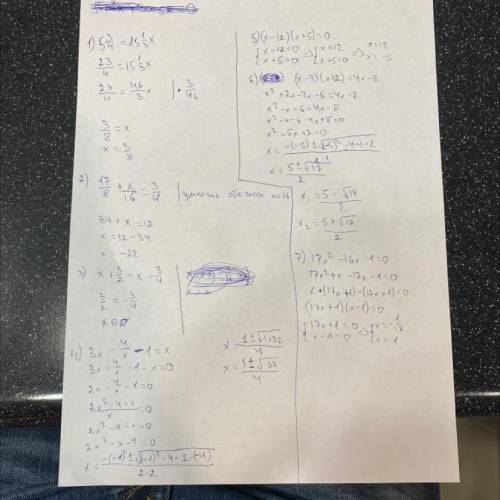 1) 5 3/4 = 15 1/3 x
23/4 = 15 1/3 x
23/4 = 46/3 x | · 3/46
3/8 = x
x = 3/8
2) 17/8 + x/16 = 3/4 | умножь обе части на 16
34 + x = 12
x = 12 - 34
x = -22
3) x + 3/2 = x - 3/4
3/2 = -3/4
x ∈ ∅
4) 3x - 4/x - 1 = x
3x - 4/x - 1 - x = 0
2x - 4/x - 1 = 0
(2x² - 4 - x)/x = 0
2x² - 4 - x = 0
2x² - x - 4 = 0
x = (-(-1) ± √((-1)² - 4 · 2 · (-4)))/(2 · 2)
x = (1 ± √(1+32))/4
x = (1 ± √33)/4
5) (x-12)(x+5) = 0
{x-12=0 => {x=12 => x=12
{x+5=0 {x+5=0 x=-5
6) (x-3)(x+2) = 4x-8
x² + 2x - 3x - 6 = 4x - 8
x² - x - 6 = 4x - 8
x² - x - 6 - 4x + 8 = 0
x² - 5x + 2 = 0
x = (-(-5) ± √((-5)² - 4 · 1 · 2))/(2 · 1)
x = (5 ± √17)/2
x₁ = (5 - √17)/2
x₂ = (5 + √17)/2
7) 17x² - 16x - 1 = 0
17x² + x - 17x - 1 = 0
x · (17x+1) - (17x+1) = 0
(17x+1)(x-1) = 0
{17x+1=0 => {x=-1/17
{x-1=0 {x=1